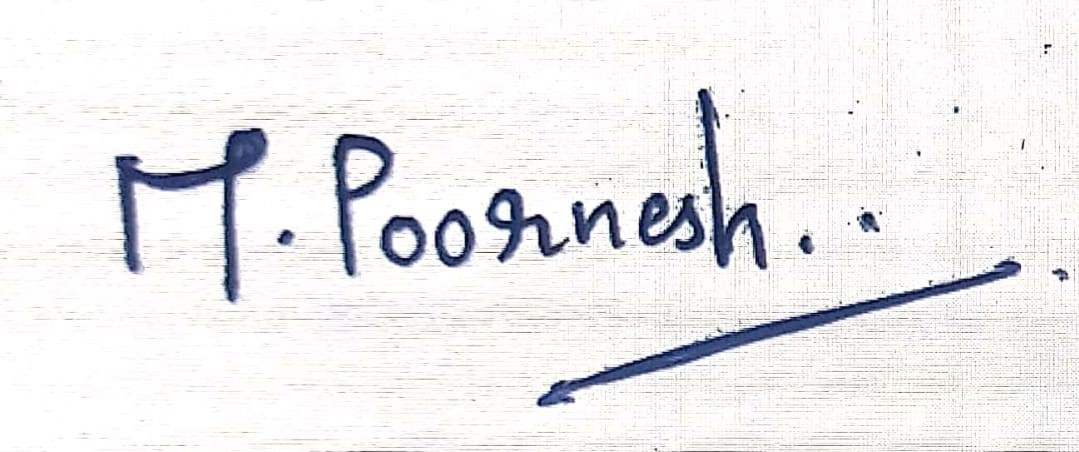 M. Poornesh..